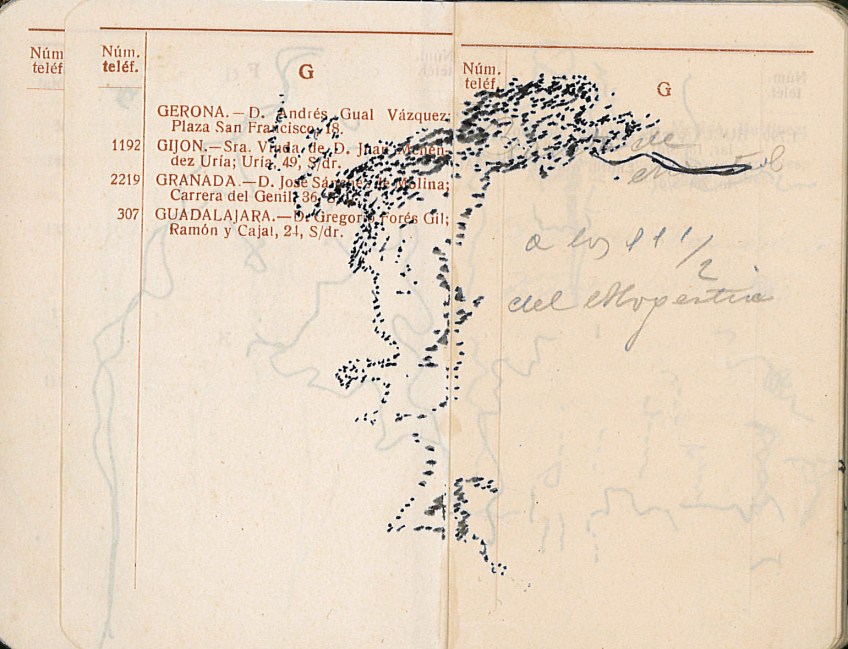 Núm.
teléf.
Núm.
teléf.
G
GERONA.—D. Andrés Gual Vázquez;
Plaza San Francisco, 18.
1192 GIJON.—Sra. Viuda de D. Juan Menén-
dez Uría; Uría, 49, S/dr.
2219 GRANADA.—D. José Sánchez de Molina;
Carrera del Genil, 36, S/
307 GUADALAJARA.—D. Gregorio Forés Gil;
Ramón y Cajal, 24, S/dr.
Núm.
teléf.
G
de
a los 11 1/2
del